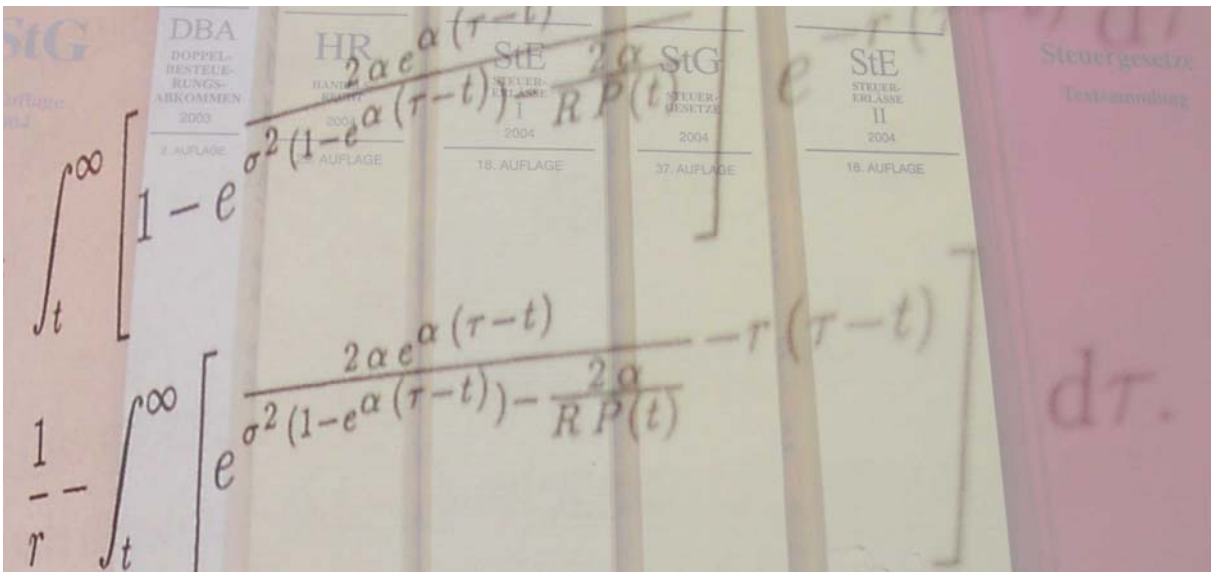 StG
DBA
DOPPEL-
BESTEUE-
RUNGS-
ABKOMMEN
2003
2. AUFLAGE
HR
HANDELS
RECHT
2004
AUFLAGE
StE
STEUER-
ERLÄSSE
I
2004
18. AUFLAGE
StG
STEUER-
GESETZE
2004
37. AUFLAGE
StE
STEUER-
ERLÄSSE
II
2004
18. AUFLAGE
Steuergesetze
Textsammlung
∫_t^∞ [1 − e^{\frac{2 α e^{α (τ−t)}}{σ² (1−e^{α (τ−t)}) − \frac{2 α}{R P(t)}}}] e^{−r (τ−t)} dτ
\frac{1}{r} − ∫_t^∞ [e^{\frac{2 α e^{α (τ−t)}}{σ² (1−e^{α (τ−t)}) − \frac{2 α}{R P(t)}} − r (τ−t)}] dτ.